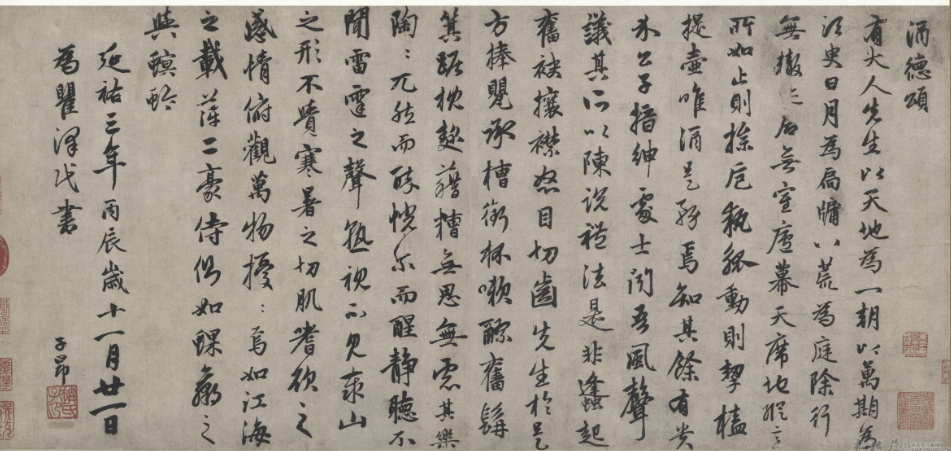 酒德頌
有大人先生以天地為一朝以萬期為
須史日月為扃牖八荒為庭除行
無轍迹居無室廬幕天席地縱意
所如止則操卮執觚動則挈榼
提壺唯酒是務焉知其餘有貴
介公子搢紳處士聞吾風聲
議其所以陳說禮法是非蠭起
奮袂攘襟怒目切齒先生於是
方捧甖承槽銜杯嗽醪奮髯
箕踞枕麴藉糟無思無慮其樂
陶〻兀然而醉恍尔而醒静聽不
聞雷霆之聲熟視不見泰山
之形不覺寒暑之切肌嗜欲之
感情俯觀萬物擾〻焉如江海
之載萍二豪侍側如蜾蠃之
與螟蛉
延祐三年丙辰歲十一月廿一日
為瞿澤民書
子昂
趙氏子昂